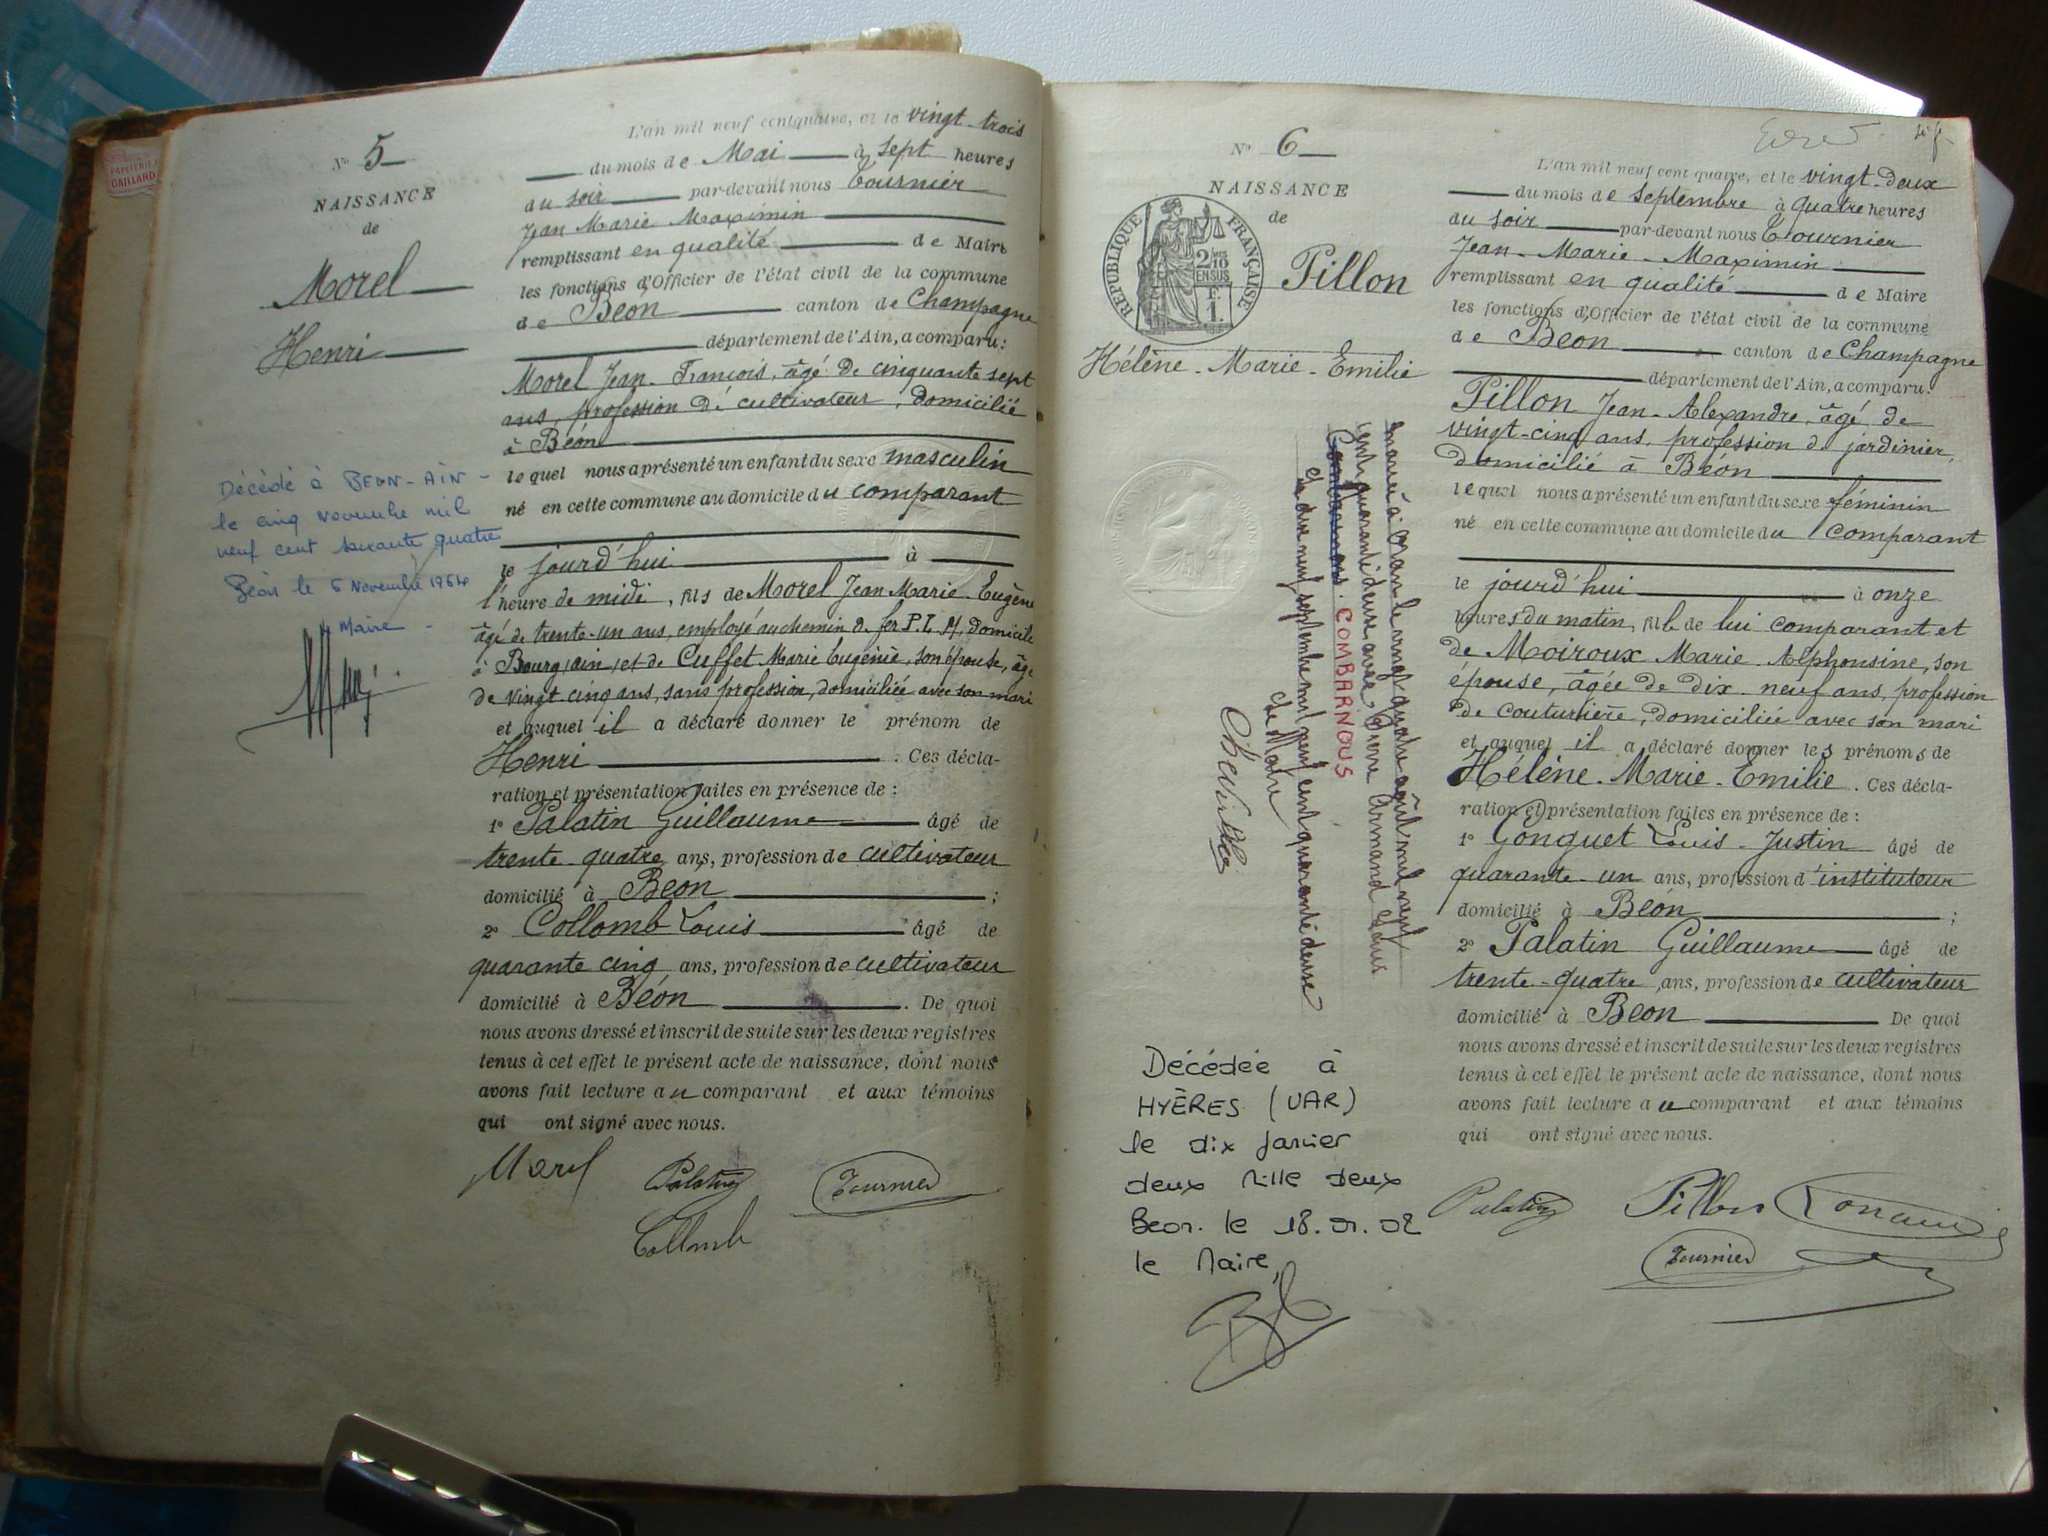 PAPETERIE
GAILLARD
No 5
NAISSANCE
de
Morel
Henri
L'an mil neuf cent quatre, et le vingt-trois
du mois de Mai à sept heures
du soir par-devant nous Tournier
Jean Marie Maximin
remplissant en qualité de Maire
les fonctions d'Officier de l'état civil de la commune
de Béon canton de Champagne
département de l'Ain, a comparu:
Morel Jean-François, âgé de cinquante sept
ans, profession de cultivateur, domicilié
à Béon
lequel nous a présenté un enfant du sexe masculin
né en cette commune au domicile du comparant
le jourd'hui à
l'heure de midi, fils de Morel Jean Marie-Eugène
âgé de trente-un ans, employé au chemin d. fer P.L.M, domicilié
à Bourg, ain, et de Cuffet Marie Eugénie, son épouse, âgé
de vingt cinq ans, sans profession, domiciliée avec son mari
et auquel il a déclaré donner le prénom de
Henri. Ces décla-
ration et présentation faites en présence de :
1º Palatin Guillaume âgé de
trente-quatre ans, profession de cultivateur
domicilié à Béon ;
2º Collomb Louis âgé de
quarante cinq ans, profession de cultivateur
domicilié à Béon. De quoi
nous avons dressé et inscrit de suite sur les deux registres
tenus à cet effet le présent acte de naissance, dont nous
avons fait lecture au comparant et aux témoins
qui ont signé avec nous.
Morel Palatin Tournier
Collomb
Décédé à BEON-AIN-
le cinq Novembre mil
neuf cent soixante quatre
Béon le 5 Novembre 1964
Maire
No 6
NAISSANCE
de
REPUBLIQUE FRANÇAISE
2/10
EN SUS
1 F.
Pillon
Hélène-Marie-Emilie
L'an mil neuf cent quatre, et le vingt-deux
du mois de septembre à quatre heures
du soir par-devant nous Tournier
Jean-Marie-Maximin
remplissant en qualité de Maire
les fonctions d'Officier de l'état civil de la commune
de Béon canton de Champagne
département de l'Ain, a comparu:
Pillon Jean-Alexandre, âgé de
vingt-cinq ans, profession de jardinier,
domicilié à Béon
lequel nous a présenté un enfant du sexe féminin
né en cette commune au domicile du comparant
le jourd'hui à onze
heures du matin, fille de lui comparant et
de Moiroux Marie Alphonsine, son
épouse, âgée de dix-neuf ans, profession
de couturière, domiciliée avec son mari
et auquel il a déclaré donner les prénoms de
Hélène-Marie-Emilie. Ces décla-
ration et présentation faites en présence de :
1º Gonguet Louis-Justin âgé de
quarante-un ans, profession d'instituteur
domicilié à Béon ;
2º Palatin Guillaume âgé de
trente-quatre ans, profession de cultivateur
domicilié à Béon De quoi
nous avons dressé et inscrit de suite sur les deux registres
tenus à cet effet le présent acte de naissance, dont nous
avons fait lecture au comparant et aux témoins
qui ont signé avec nous.
Palatin Pillon
Tournier
mariée à Oran le vingt quatre août mil neuf
cent quarante deuse avec Pierre Armand Louis
Combarnous. COMBARNOUS
Le dix neuf septembre mil neuf cent quarante deuse
Le Maire
Décédée à
HYÈRES (VAR)
le dix Janvier
deux Mille deux
Beon. le 18.01.02
le Maire,